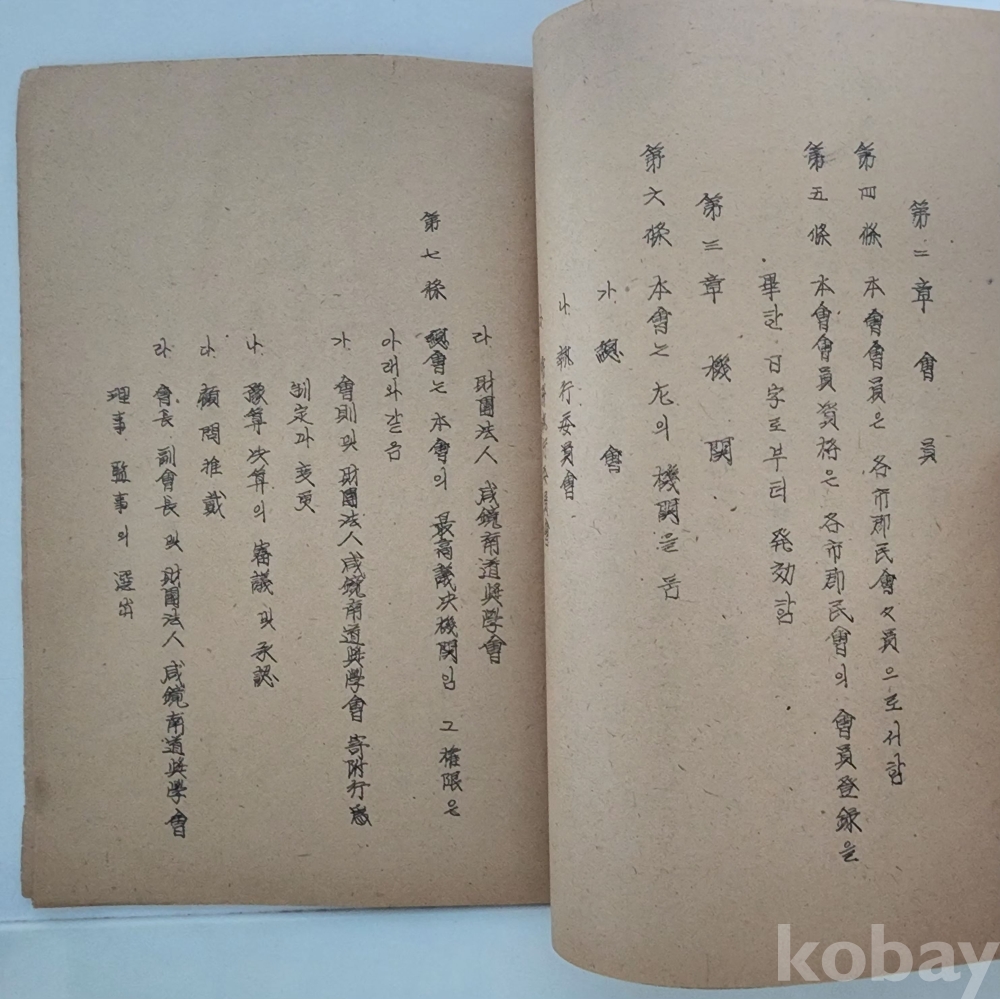 第二章 會員
第四條 本會會員은 各市郡民會々員으로서함
第五條 本會會員資格은 各市郡民會의 會員登録을
畢한 日字로부터 発効함
第三章 機関
第六條 本會는 左의 機関을 둠
가. 總會
나. 執行委員會
라. 財団法人 咸鏡南道奬学會
第七條 總會는 本會의 最高議决機関임 그 権限은
아래와같음
가. 會則및 財団法人咸鏡南道奬學會 寄附行爲
制定과 変更
나. 豫算决算의 審議및承認
다. 顧問推戴
라. 會長 副會長 및 財団法人 咸鏡南道奬学會
理事 監事의 選出
kobay